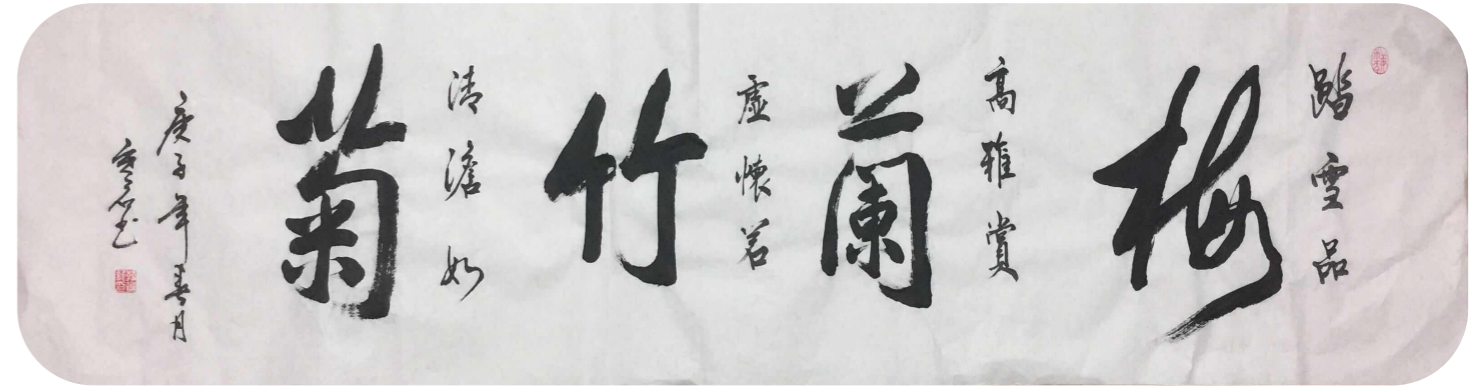 踏雪品
梅
高雅赏
蘭
虚懷若
竹
清澹如
菊
庚子年春月